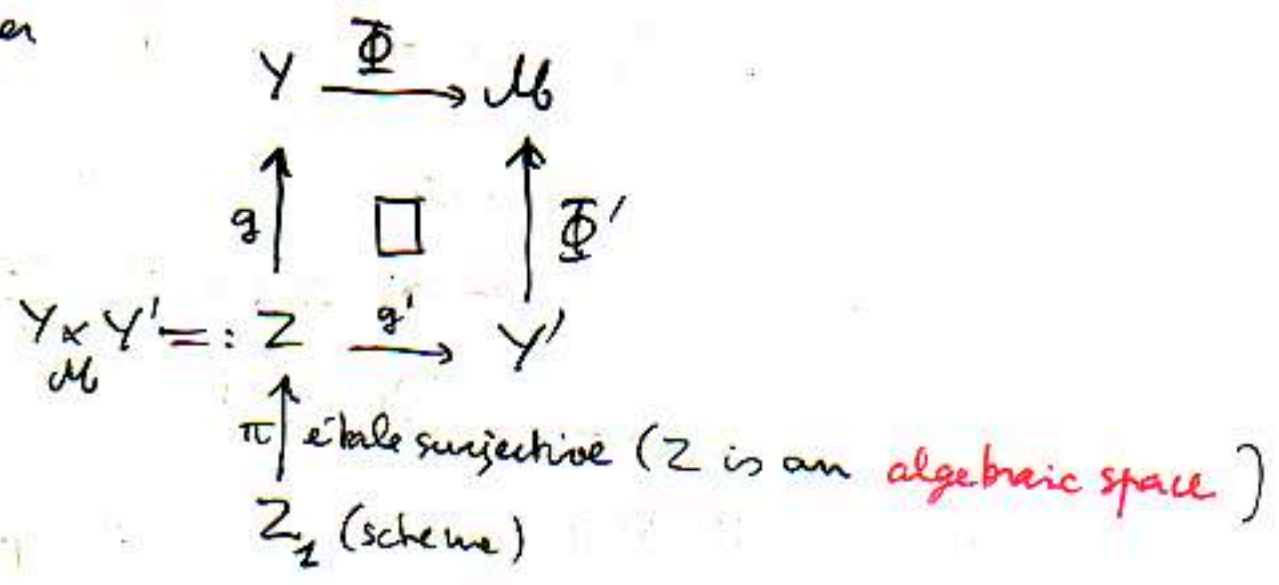 en
Φ
Y → ℳ
g □ Φ'
Y × Y' =: Z g' → Y'
ℳ
π étale surjective (Z is an algebraic space)
Z₁ (scheme)